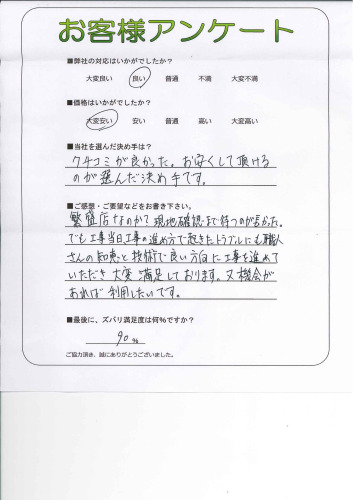 お客様アンケート
■弊社の対応はいかがでしたか？
大変良い 良い 普通 不満 大変不満
■価格はいかがでしたか？
大変安い 安い 普通 高い 大変高い
■当社を選んだ決め手は？
クチコミが良かった。お安くして頂ける
のが選んだ決め手です。
■ご感想・ご要望などをお書き下さい。
繁盛店なのかて現地確認まで待つのが長かった。
でも工事当日工事の進め方で起きたトラブルにも職人
さんの知恵と技術で良い方向に工事を進めて
いただき大変満足しております。又機会が
あれば利用したいです。
■最後に、ズバリ満足度は何%ですか？
90%
ご協力頂き、誠にありがとうございました。